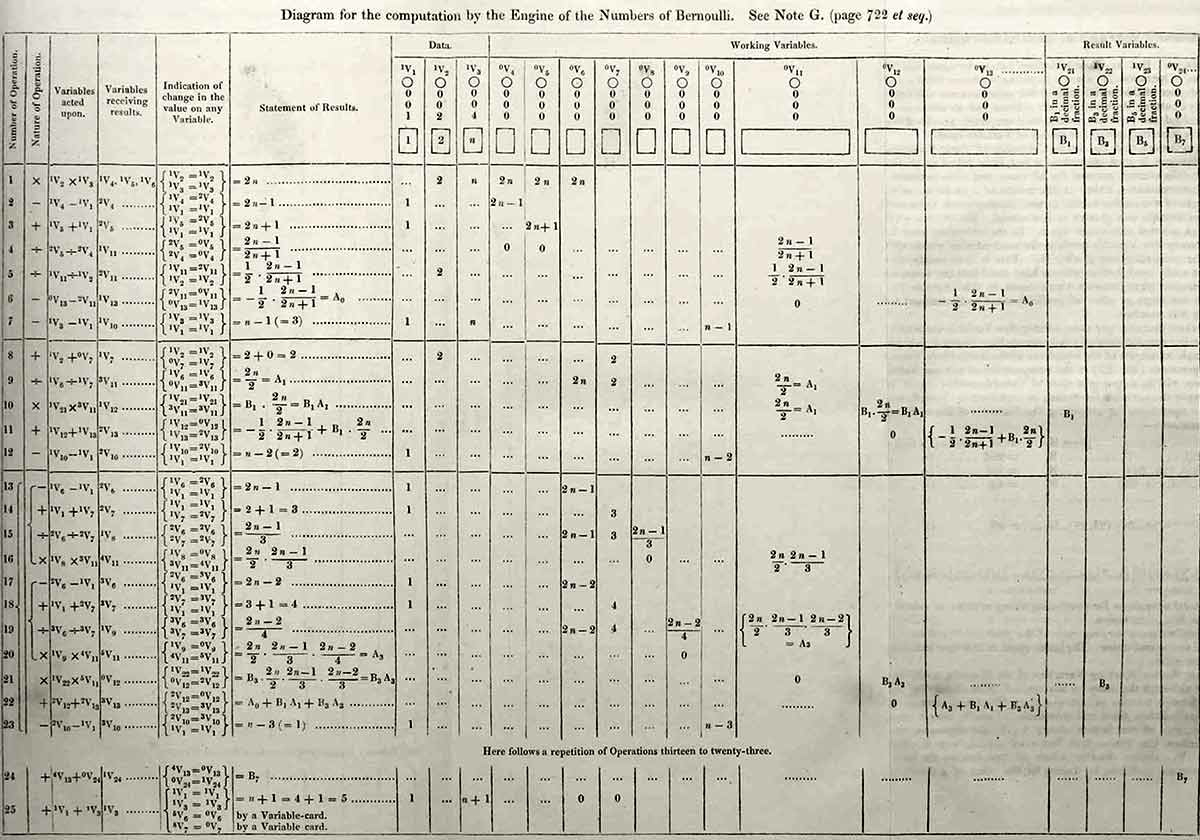 Diagram for the computation by the Engine of the Numbers of Bernoulli. See Note G. (page 722 et seq.)
Data. Working Variables. Result Variables.
Number of Operation.
Nature of Operation.
Variables acted upon.
Variables receiving results.
Indication of change in the value on any Variable.
Statement of Results.
¹V₁ ¹V₂ ¹V₃ ⁰V₄ ⁰V₅ ⁰V₆ ⁰V₇ ⁰V₈ ⁰V₉ ⁰V₁₀ ⁰V₁₁ ⁰V₁₂ ⁰V₁₃ ............ ¹V₂₁ ¹V₂₂ ¹V₂₃ ⁰V₂₄......
○ ○ ○ ○ ○ ○ ○ ○ ○ ○ ○ ○ ○ ○ ○ ○ ○
0 0 0 0 0 0 0 0 0 0 0 0 0 0
0 0 0 0 0 0 0 0 0 0 0 0 0 0
0 0 0 0 0 0 0 0 0 0 0 0 0 0
1 2 4 0 0 0 0 0 0 0 0 0 0 0
B₁ in a decimal fraction.
B₃ in a decimal fraction.
B₅ in a decimal fraction.
1 2 n B₁ B₃ B₅ B₇
1 × ¹V₂ × ¹V₃ ¹V₄, ¹V₅, ¹V₆ {¹V₂ = ¹V₂ ¹V₃ = ¹V₃} = 2n ... 2 n 2n 2n 2n
2 − ¹V₄ − ¹V₁ ²V₄ ......... {¹V₄ = ²V₄ ¹V₁ = ¹V₁} = 2n − 1 1 ... ... 2n − 1
3 + ¹V₅ + ¹V₁ ²V₅ ......... {¹V₅ = ²V₅ ¹V₁ = ¹V₁} = 2n + 1 1 ... ... ... 2n + 1
4 ÷ ²V₅ ÷ ²V₄ ¹V₁₁ ......... {²V₅ = ⁰V₅ ²V₄ = ⁰V₄} = (2n − 1)/(2n + 1) ... ... ... 0 0 ... ... ... ... ... (2n − 1)/(2n + 1)
5 ÷ ¹V₁₁ ÷ ¹V₂ ²V₁₁ ......... {¹V₁₁ = ²V₁₁ ¹V₂ = ¹V₂} = 1/2 · (2n − 1)/(2n + 1) ... 2 ... ... ... ... ... ... ... ... 1/2 · (2n − 1)/(2n + 1)
6 − ⁰V₁₃ − ²V₁₁ ¹V₁₃ ......... {²V₁₁ = ⁰V₁₁ ⁰V₁₃ = ¹V₁₃} = − 1/2 · (2n − 1)/(2n + 1) = A₀ ... ... ... ... ... ... ... ... ... ... 0 ......... − 1/2 · (2n − 1)/(2n + 1) = A₀
7 − ¹V₃ − ¹V₁ ¹V₁₀ ......... {¹V₃ = ¹V₃ ¹V₁ = ¹V₁} = n − 1 (= 3) 1 ... n ... ... ... ... ... ... n − 1
8 + ¹V₂ + ⁰V₇ ¹V₇ ......... {¹V₂ = ¹V₂ ⁰V₇ = ¹V₇} = 2 + 0 = 2 ... 2 ... ... ... ... 2
9 ÷ ¹V₆ ÷ ¹V₇ ³V₁₁ ......... {¹V₆ = ¹V₆ ⁰V₁₁ = ³V₁₁} = 2n/2 = A₁ ... ... ... ... ... 2n 2 ... ... ... 2n/2 = A₁
10 × ¹V₂₁ × ³V₁₁ ¹V₁₂ ......... {¹V₂₁ = ¹V₂₁ ³V₁₁ = ³V₁₁} = B₁ · 2n/2 = B₁ A₁ ... ... ... ... ... ... ... ... ... ... 2n/2 = A₁ B₁ · 2n/2 = B₁ A₁ ......... B₁
11 + ¹V₁₂ + ¹V₁₃ ²V₁₃ ......... {¹V₁₂ = ⁰V₁₂ ¹V₁₃ = ²V₁₃} = − 1/2 · (2n − 1)/(2n + 1) + B₁ · 2n/2 ... ... ... ... ... ... ... ... ... ... ......... 0 {− 1/2 · (2n − 1)/(2n + 1) + B₁ · 2n/2}
12 − ¹V₁₀ − ¹V₁ ²V₁₀ ......... {¹V₁₀ = ²V₁₀ ¹V₁ = ¹V₁} = n − 2 (= 2) 1 ... ... ... ... ... ... ... ... n − 2
13 − ¹V₆ − ¹V₁ ²V₆ ......... {¹V₆ = ²V₆ ¹V₁ = ¹V₁} = 2n − 1 1 ... ... ... ... 2n − 1
14 + ¹V₁ + ¹V₇ ²V₇ ......... {¹V₁ = ¹V₁ ¹V₇ = ²V₇} = 2 + 1 = 3 1 ... ... ... ... ... 3
15 ÷ ²V₆ ÷ ²V₇ ¹V₈ ......... {²V₆ = ²V₆ ²V₇ = ²V₇} = (2n − 1)/3 ... ... ... ... ... 2n − 1 3 (2n − 1)/3
16 × ¹V₈ × ³V₁₁ ⁴V₁₁ ......... {¹V₈ = ⁰V₈ ³V₁₁ = ⁴V₁₁} = 2n/2 · (2n − 1)/3 ... ... ... ... ... ... ... 0 ... ... 2n/2 · (2n − 1)/3
17 − ²V₆ − ¹V₁ ³V₆ ......... {²V₆ = ³V₆ ¹V₁ = ¹V₁} = 2n − 2 1 ... ... ... ... 2n − 2
18 + ¹V₁ + ²V₇ ³V₇ ......... {²V₇ = ³V₇ ¹V₁ = ¹V₁} = 3 + 1 = 4 1 ... ... ... ... ... 4
19 ÷ ³V₆ ÷ ³V₇ ¹V₉ ......... {³V₆ = ³V₆ ³V₇ = ³V₇} = (2n − 2)/4 ... ... ... ... ... 2n − 2 4 ... (2n − 2)/4 ... {2n/2 · (2n − 1)/3 · (2n − 2)/3 = A₃}
20 × ¹V₉ × ⁴V₁₁ ⁵V₁₁ ......... {¹V₉ = ⁰V₉ ⁴V₁₁ = ⁵V₁₁} = 2n/2 · (2n − 1)/3 · (2n − 2)/4 = A₃ ... ... ... ... ... ... ... ... 0
21 × ¹V₂₂ × ⁵V₁₁ ⁰V₁₂ ......... {¹V₂₂ = ¹V₂₂ ⁰V₁₂ = ²V₁₂} = B₃ · 2n/2 · (2n − 1)/3 · (2n − 2)/3 = B₃ A₃ ... ... ... ... ... ... ... ... ... ... 0 B₃ A₃ ......... ...... B₃
22 + ²V₁₂ + ²V₁₃ ³V₁₃ ......... {²V₁₂ = ⁰V₁₂ ²V₁₃ = ³V₁₃} = A₀ + B₁ A₁ + B₃ A₃ ... ... ... ... ... ... ... ... ... ... ......... 0 {A₃ + B₁ A₁ + B₃ A₃}
23 − ²V₁₀ − ¹V₁ ³V₁₀ ......... {²V₁₀ = ³V₁₀ ¹V₁ = ¹V₁} = n − 3 (= 1) 1 ... ... ... ... ... ... ... ... n − 3
Here follows a repetition of Operations thirteen to twenty-three.
24 + ⁴V₁₃ + ⁰V₂₄ ¹V₂₄ ......... {⁴V₁₃ = ⁰V₁₃ ⁰V₂₄ = ¹V₂₄} = B₇ ... ... ... ... ... ... ... ... ... ... ......... ...... ......... ...... ...... ...... B₇
25 + ¹V₁ + ¹V₃ ¹V₃ ......... {¹V₁ = ¹V₁ ¹V₃ = ¹V₃ ⁵V₆ = ⁰V₆ ⁵V₇ = ⁰V₇} = n + 1 = 4 + 1 = 5 1 ... n + 1 ... ... 0 0
by a Variable-card.
by a Variable card.